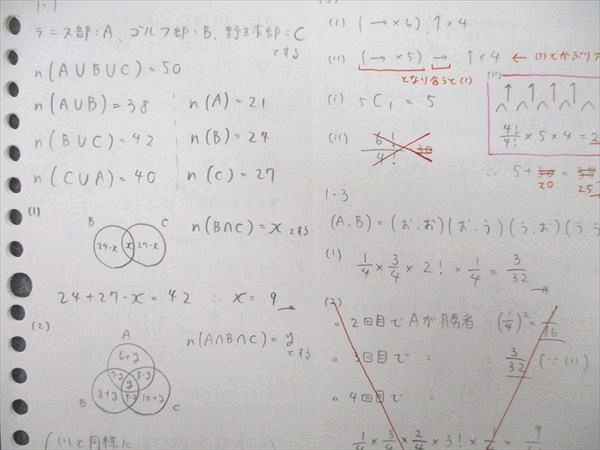 1・1
テニス部：A、ゴルフ部：B、野球部：C
とする
n(A∪B∪C)=50
n(A∪B)=38
n(A)=21
n(B∪C)=42
n(B)=24
n(C∪A)=40
n(C)=27
(1)
B
C
24-x
x
27-x
n(B∩C)=xとする
24+27-x=42 ∴ x=9
(2)
A
6+y
7-y
8-y
y
8+y
9-y
10+y
B
C
n(A∩B∩C)=y
とする
(1)と同様に
(i) (→×6) ↑×4
(ii) (→×5) → ↑×4 ←
となり合うと(i)
(i) 5C1=5
(ii) 6!/4! 30
(ii)
4!/4!×5×4=2
∴ 5+30=35
20
25
1・3
(A.B)=(お.お)(お.う)(う.お)(う.
(1)
1/4×3/4×2!×1/4=3/32
(2)
。2回目でAが勝者：(1/4)²=1/16
。3回目で 〃 ： 3/32 (∵(1))
。4回目で 〃
1/4×3/4×2/4×3!×1/4=9